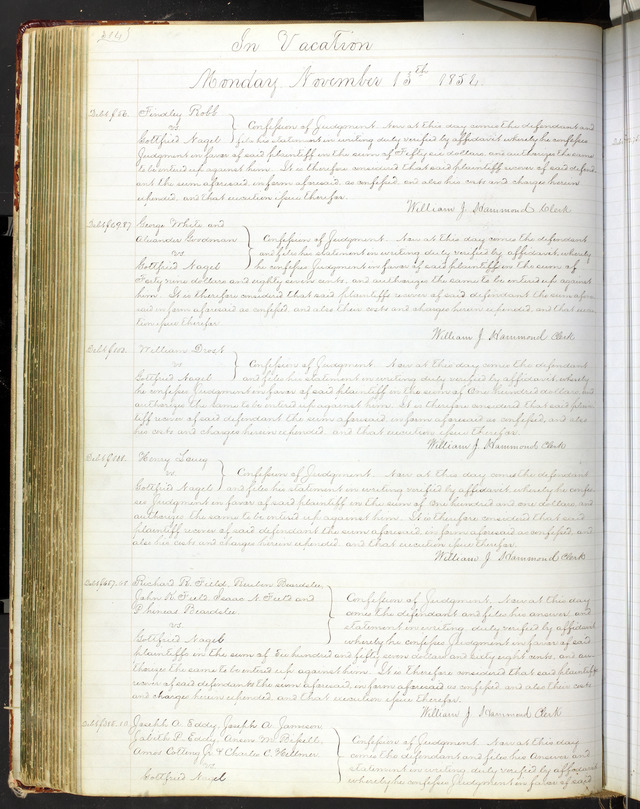 In Vacation
Monday November 15th 1852.
Findley Robb
vs
Gottfried Nagel
Confession of Judgment. Now at this day comes the defendant and
files his statement in writing duly verified by affidavit whereby he confesses
Judgment in favor of said plaintiff in the sum of Fifty six dollars and authorizes the same
to be entered up against him. It is therefore considered that said plaintiff recover of said defend-
ant the sum aforesaid, in form aforesaid, as confessed and also his costs and charges herein
expended, and that execution issue therefor.
William J. Hammond Clerk
George White and
Alexander Goodman
vs
Gottfried Nagel
Confession of Judgment. Now at this day comes the defendant
and files his statement in writing duly verified by affidavit, whereby
he confesses Judgment in favor of said plaintiff in the sum of
Forty nine dollars and eighty seven cents, and authorizes the same to be entered up against
him. It is therefore considered that said plaintiffs recover of said defendant the sum afore-
said in form aforesaid as confessed, and also their costs and charges herein expended, and that execu-
tion issue therefor
William J. Hammond Clerk
William Drost
vs
Gottfried Nagel
Confession of Judgment. Now at this day comes the defendant
and files his statement in writing duly verified by affidavit, whereby
he confesses Judgment in favor of said plaintiff in the sum of One hundred dollars and
authorizes the same to be entered up against him. It is therefore considered that said plain-
tiff recover of said defendant the sum aforesaid in form aforesaid as confessed, and also
his costs and charges herein expended, and that execution issue therefor.
William J. Hammond Clerk
Henry
vs.
Gottfried Nagel
Confession of Judgment. Now at this day comes the defendant
and files his statement in writing verified by affidavit, whereby he confes-
ses Judgment in favor of said plaintiff in the sum of One hundred and one dollars, and
authorizes the same to be entered up against him. It is therefore considered that said
plaintiff recover of said defendant the sum aforesaid, in form aforesaid as confessed, and
also his costs and charges herein expended, and that execution issue therefor.
William J. Hammond Clerk
Richard R. Field, Reuben Beardslee
John R. Field, Isaac N. Field and
Phineas Beardslee
vs.
Gottfried Nagel
Confession of Judgment. Now at this day
comes the defendant and files his answer and
statement in writing duly verified by affidavit
whereby he confesses Judgment in favor of said
plaintiffs in the sum of Six hundred and fifty seven dollars and sixty eight cents, and au-
thorizes the same to be entered up against him. It is therefore considered that said plaintiffs
recover of said defendants the sum aforesaid, in form aforesaid as confessed, and also their costs
and charges herein expended, and that execution issue therefor.
William J. Hammond Clerk
Joseph A. Eddy, Joseph A. Jameson
P. Eddy, M. Bissell,
Amos Jr. & Charles C.
vs
Gottfried Nagel
Confession of Judgment. Now at this day
comes the defendant and files his answer and
statement in writing duly verified by affidavit
whereby he confesses Judgment in favor of said